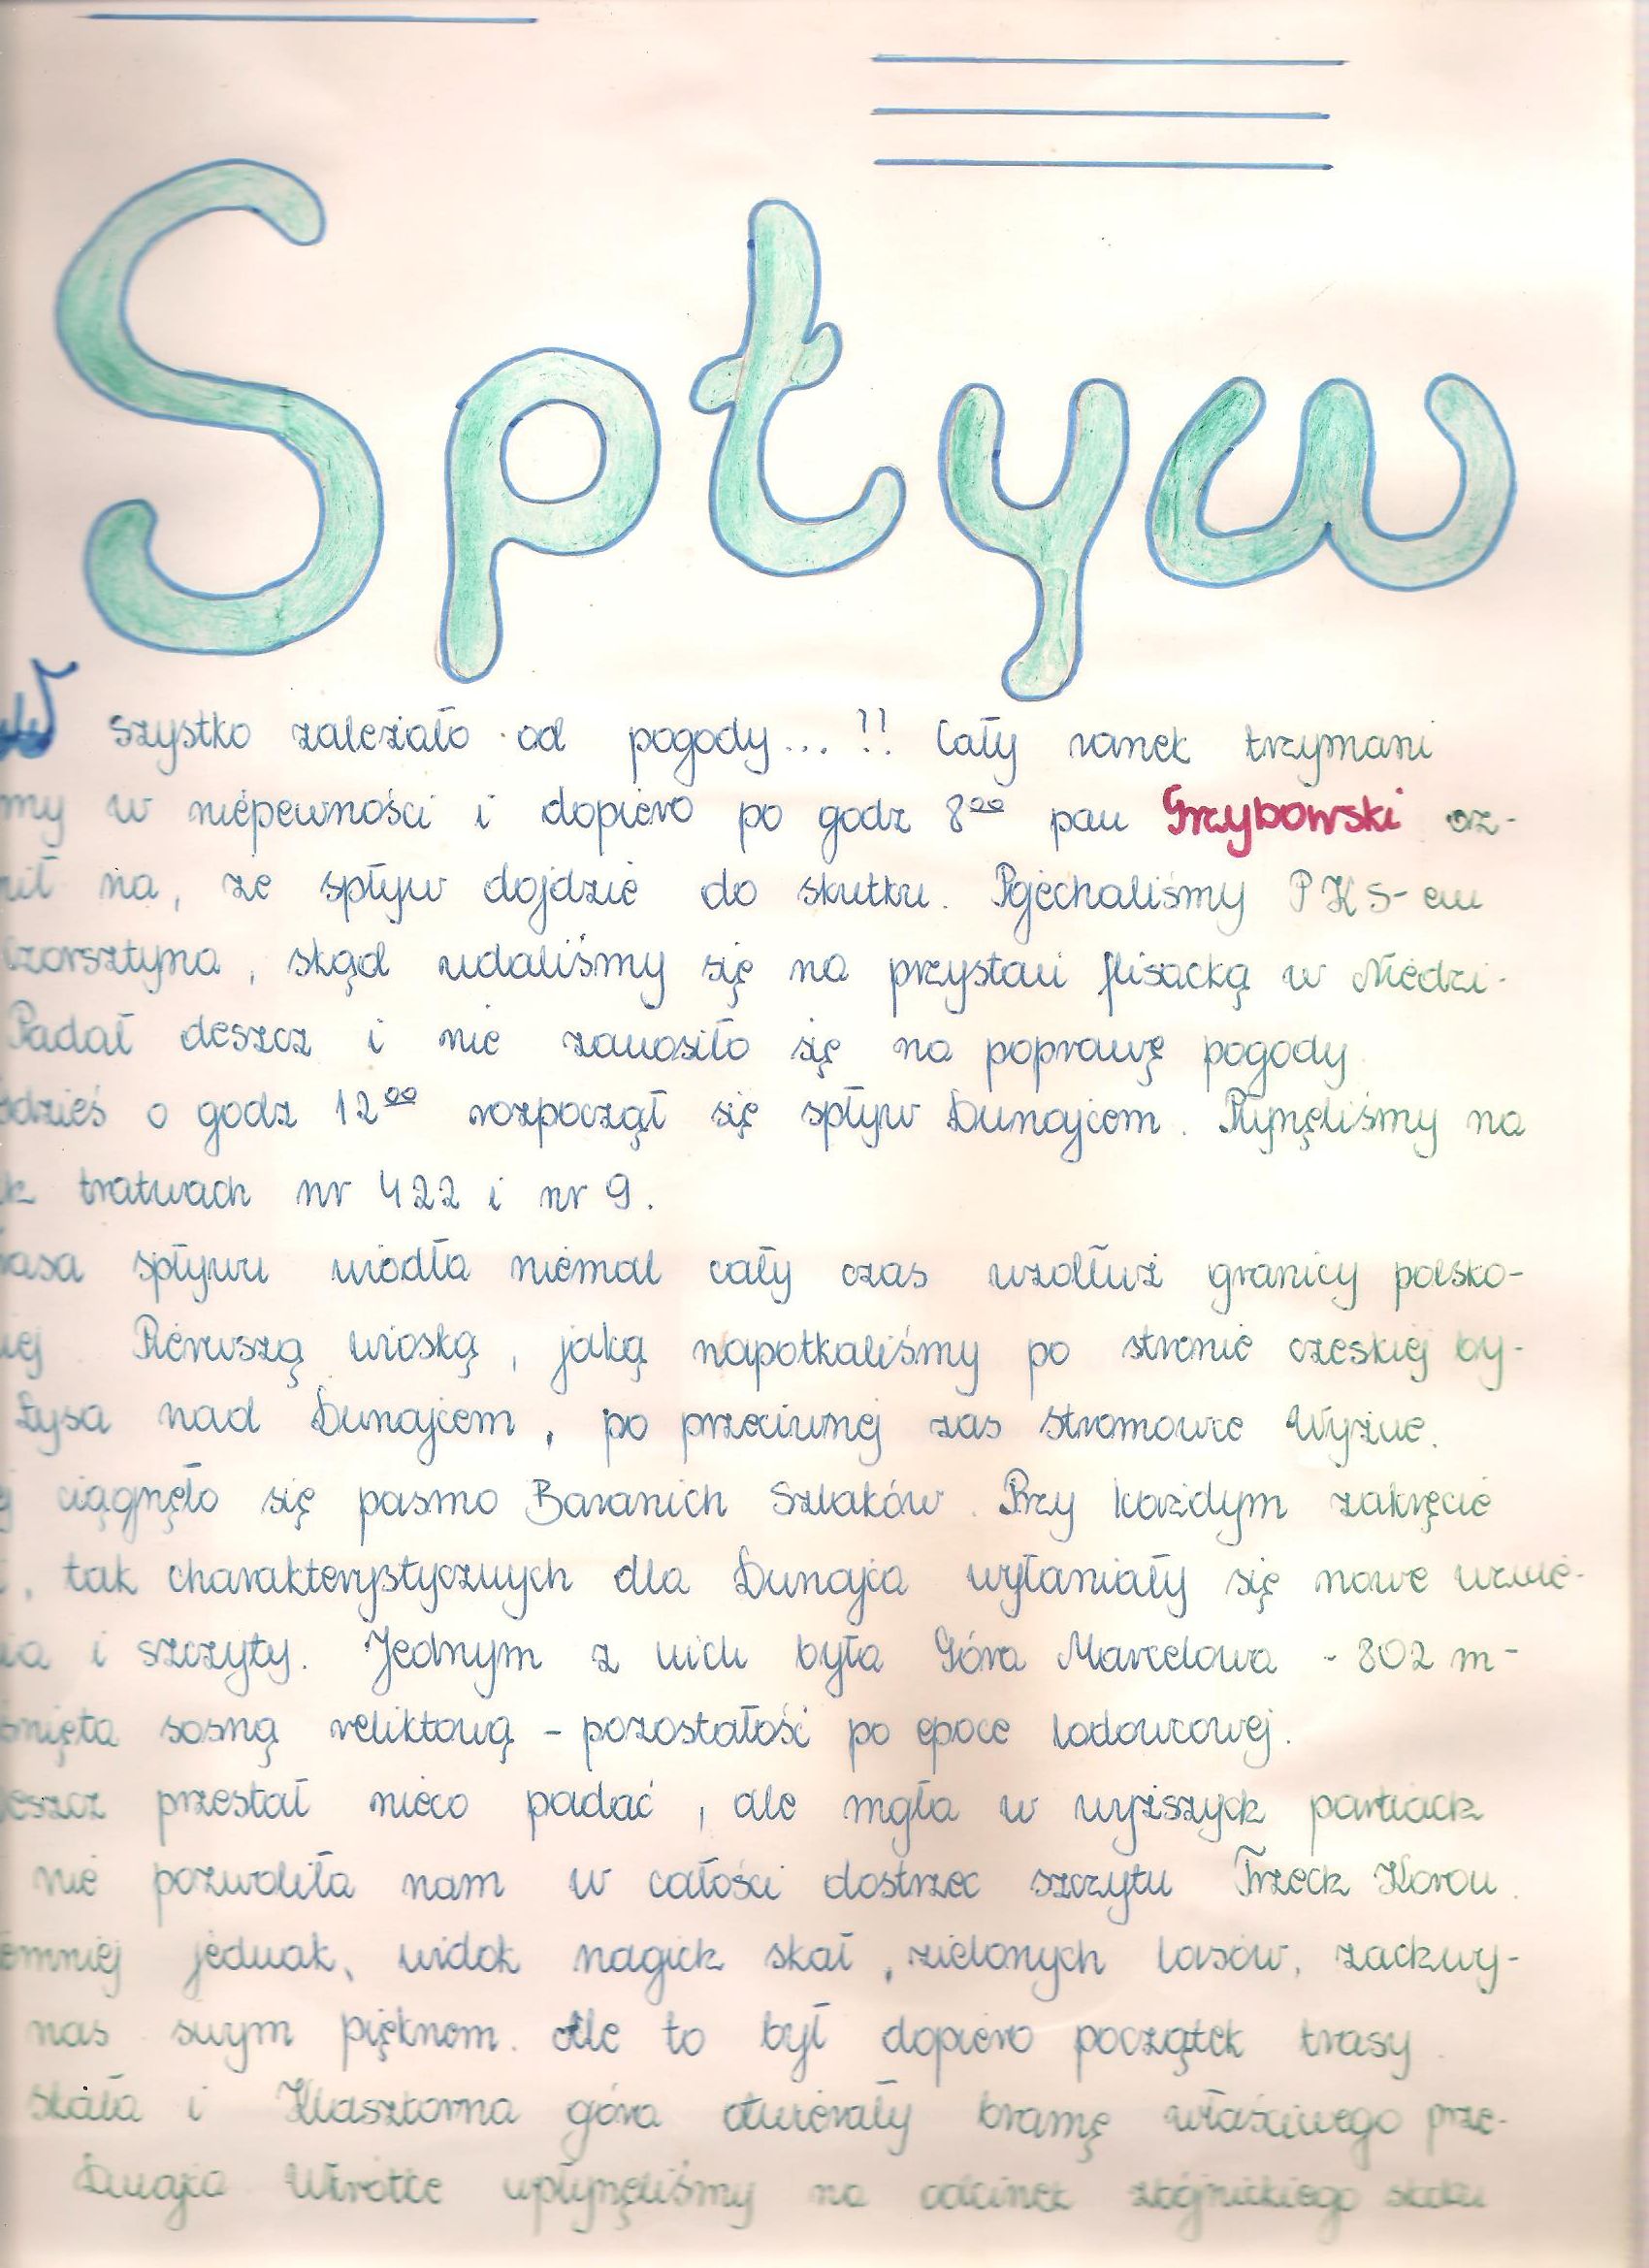 Spływ
W szystko zależało od pogody... !! Cały ranek trzymani
my w niepewności i dopiero po godz 8⁰⁰ pan Grzybowski oz-
nił na, że spływ dojdzie do skutku. Pojechaliśmy PKS-em
Czorsztyna, skąd udaliśmy się na przystań flisacką w Niedzi-
Padał deszcz i nie zanosiło się na poprawę pogody
dzieś o godz 12⁰⁰ rozpoczął się spływ Dunajcem. Płynęliśmy na
tratwach nr 422 i nr 9.
asa spływu wiodła niemal cały czas wzdłuż granicy polsko-
iej Pierwszą wioską, jaką napotkaliśmy po stronie czeskiej by-
Łysa nad Dunajcem, po przeciwnej zas stromowce Wyżne.
ej ciągnęło się pasmo Baranich Szlaków. Przy każdym zakręcie
, tak charakterystycznych dla Dunajca wyłaniały się nowe urwi-
ia i szczyty. Jednym z nich była Góra Marcelowa - 802 m-
śnięta sosną reliktową - pozostałość po epoce lodowcowej.
eszcz przestał nieco padać, ale mgła w wyższych partiach
nie pozwoliła nam w całości dostrzec szczytu Trzech Koron.
emniej jednak, widok nagich skał, zielonych lasów, zachwy-
nas swym pięknem. Ale to był dopiero początek trasy.
skała i Klasztorna góra otwierały bramę właściwego prze-
Dunajca Wrótce wpłynęliśmy na odcinek zbójnickiego skoku